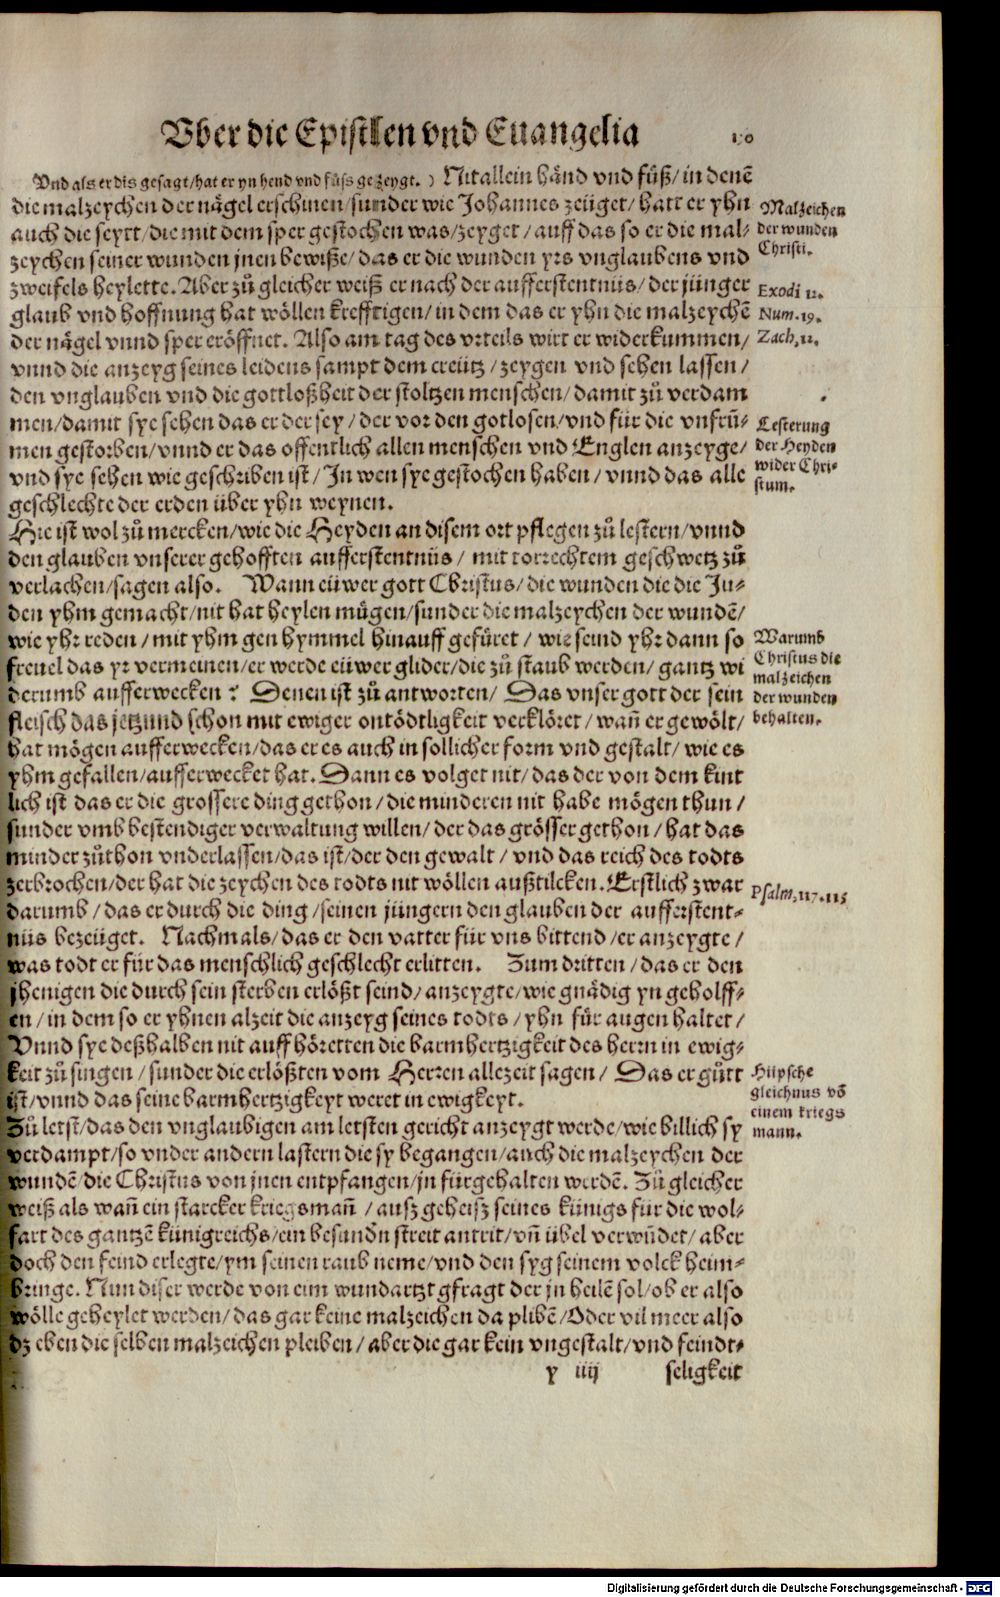 Vber die Epistlen vnd Euangelia
Vnd als er dis gesagt/hat er yn hend vnd füss gezeygt. ) Nit allein hånd vnd füß/in denē
die malzeychen der nägel erschinen/sunder wie Johannes zeüget/hatt er yhn
auch die seytt/die mit dem sper gestochen was/zeyget/auff das so er die mal-
zeychen seiner wunden jnen bewiße/das er die wunden yrs vnglaubens vnd
zweifels heylette. Aber zů gleicher weiß er nach der aufferstentnüs/der jünger
glaub vnd hoffnung hat wöllen krefftigen/in dem das er yhn die malzeychē
der någel vnnd sper eröffnet. Also am tag des vrteils wirt er widerkummen/
vnnd die anzeyg seines leidens sampt dem creütz/zeygen vnd sehen lassen/
den vnglauben vnd die gottloßheit der stoltzen menschen/damit zů verdam
men/damit sye sehen das er der sey/der vor den gotlosen/vnd für die vnfrü-
men gestorben/vnnd er das offentlich allen menschen vnd Englen anzeyge/
vnd sye sehen wie geschriben ist/In wen sye gestochen haben/vnnd das alle
geschlechte der erden über yhn weynen.
Malzeichen
der wunden
Christi.
Exodi 12.
Num. 19.
Zach. 12.
Lesterung
der Heyden
wider Chri-
stum.
Hie ist wol zů mercken/wie die Heyden an disem ort pflegen zů lestern/vnnd
den glauben vnserer gehofften aufferstentnüs/mit torrechtem geschwetz zů
verlachen/sagen also. Wann eüwer gott Christus/die wunden die die Ju-
den yhm gemacht/nit hat heylen mügen/sunder die malzeychen der wundē/
wie yhr reden/mit yhm gen hymmel hinauff gefüret/wie seind yhr dann so
freuel das yr vermeinen/er werde eüwer glider/die zů staub werden/gantz wi
derumb aufferwecken? Denen ist zů antworten/Das vnser gott der sein
fleisch das jetzund schon mit ewiger ontödtligkeit verklöret/wañ er gewölt/
hat mögen aufferwecken/das er es auch in sollicher form vnd gestalt/wie es
yhm gefallen/aufferwecket hat. Dann es volget nit/das der von dem kint
lich ist das er die grossere ding gethon/die minderen nit habe mögen thun/
sunder vmb bestendiger verwaltung willen/der das grösser gethon/hat das
minder zůthon vnderlassen/das ist/der den gewalt/vnd das reich des todts
zerbrochen/der hat die zeychen des todts nit wöllen außtilcken. Erstlich zwar
darumb/das er durch die ding/seinen jüngern den glauben der aufferstent-
nüs bezeüget. Nachmals/das er den vatter für vns bittend/er anzeygte/
was todt er für das menschlich geschlecht erlitten. Zum dritten/das er den
jhenigen die durch sein sterben erlößt seind/anzeygte/wie gnädig yn geholff-
en/in dem so er yhnen alzeit die anzeyg seines todts/yhn für augen haltet/
Vnnd sye deßhalben nit auff höretten die barmhertzigkeit des herrn in ewig-
keit zů singen/sunder die erlößten vom Herren allezeit sagen/Das er gütt
ist/vnnd das seine barmhertzigkeyt weret in ewigkeyt.
Warumb
Christus die
malzeichen
der wunden
behalten.
Psalm. 117.
Zů letst/das den vnglaubigen am letsten gericht anzeygt werde/wie billich sy
verdampt/so vnder andern lastern die sy begangen/auch die malzeychen der
wundē/die Christus von jnen entpfangen/jn fürgehalten werdē. Zů gleicher
weiß als wañ ein starcker kriegsmañ/ausz geheisz seines künigs für die wol-
fart des gantzē künigreichs/ein besundn streit antrit/vñ übel verwūdet/aber
doch den feind erlegte/ym seinen raub neme/vnd den syg seinem volck heim-
bringe. Nun diser werde von eim wundartzt gfragt der jn heilē sol/ob er also
wölle geheylet werden/das gar keine malzeichen da plibē/Oder vil meer also
dz eben die selben malzeichen pleiben/aber die gar kein vngestalt/vnd feindt-
Hüpsche
gleichnus vō
einem kriegs
mann.
y iiij seligkeit
Digitalisierung gefördert durch die Deutsche Forschungsgemeinschaft - DFG